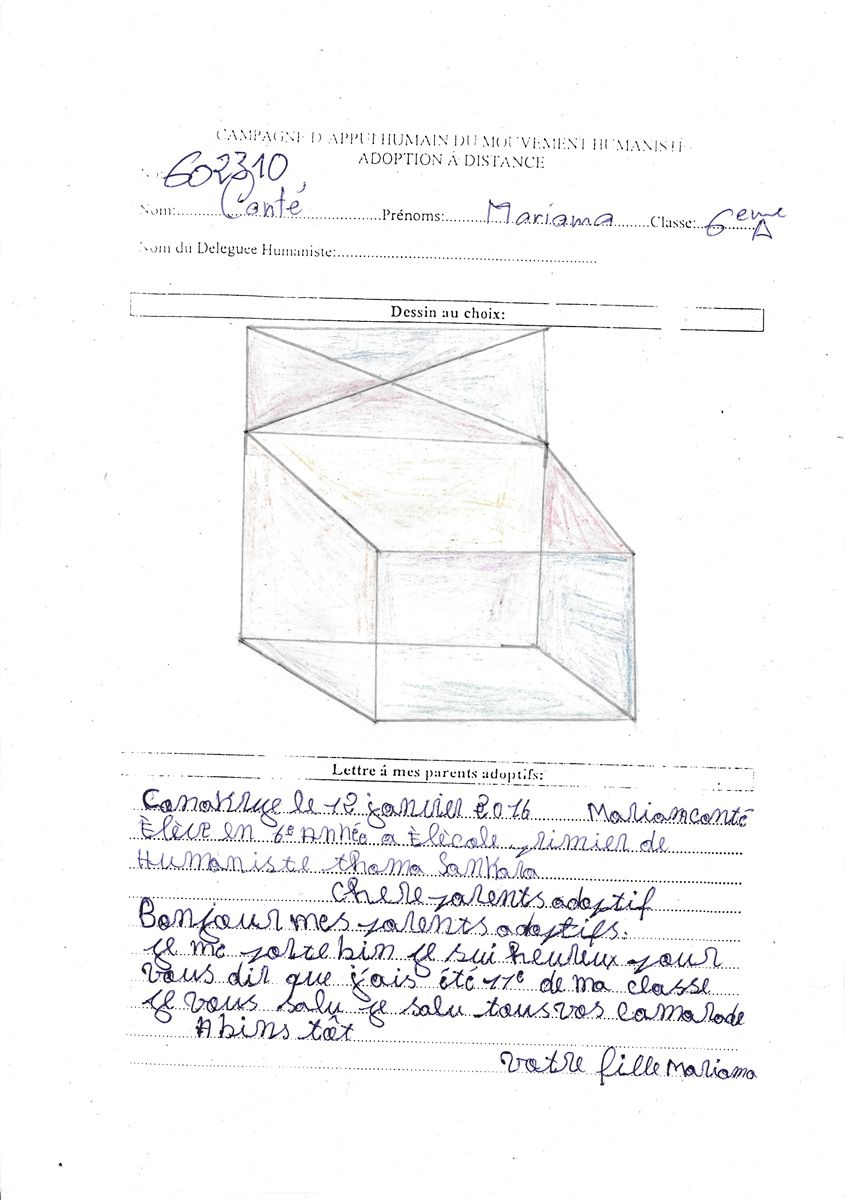 CAMPAGNE D'APPUI HUMAIN DU MOUVEMENT HUMANISTE
ADOPTION À DISTANCE
602310
Nom: Conté Prénoms: Mariama Classe: 6eme A
Nom du Deleguee Humaniste:
Dessin au choix:
Lettre á mes parents adoptifs:
Conakrye le 12 janvier 2016 Mariamconté
Èlève en 6e Année a Èlècole primier de
Humaniste thoma Sankara
chere parents adoptif
Bonjour mes parents adoptifs.
je me porte bin je sui heureux pour
vous dir que j'ais été 11e de ma classe
je vous salu je salu tous vos camarade
Abins tôt
votre fille Mariama